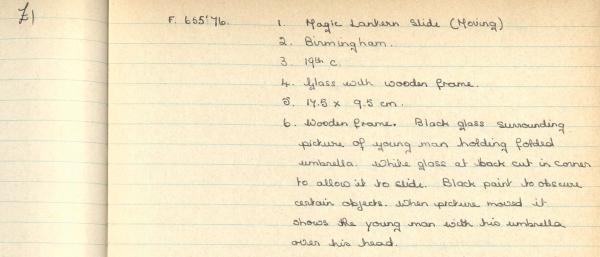 £1
F. 655'76.
1. Magic Lantern Slide (Moving)
2. Birmingham.
3. 19th c.
4. Glass with wooden frame.
5. 17.5 x 9.5 cm.
6. Wooden frame. Black glass surrounding
picture of young man holding folded
umbrella. White glass at back cut in corner
to allow it to slide. Black paint to obscure
certain objects. When picture moved it
shows the young man with his umbrella
over his head.